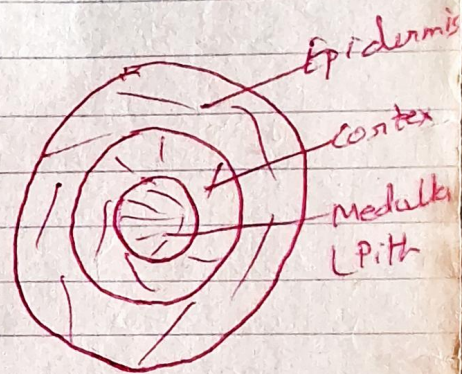 Epidermis
Cortex
Medulla
(Pith